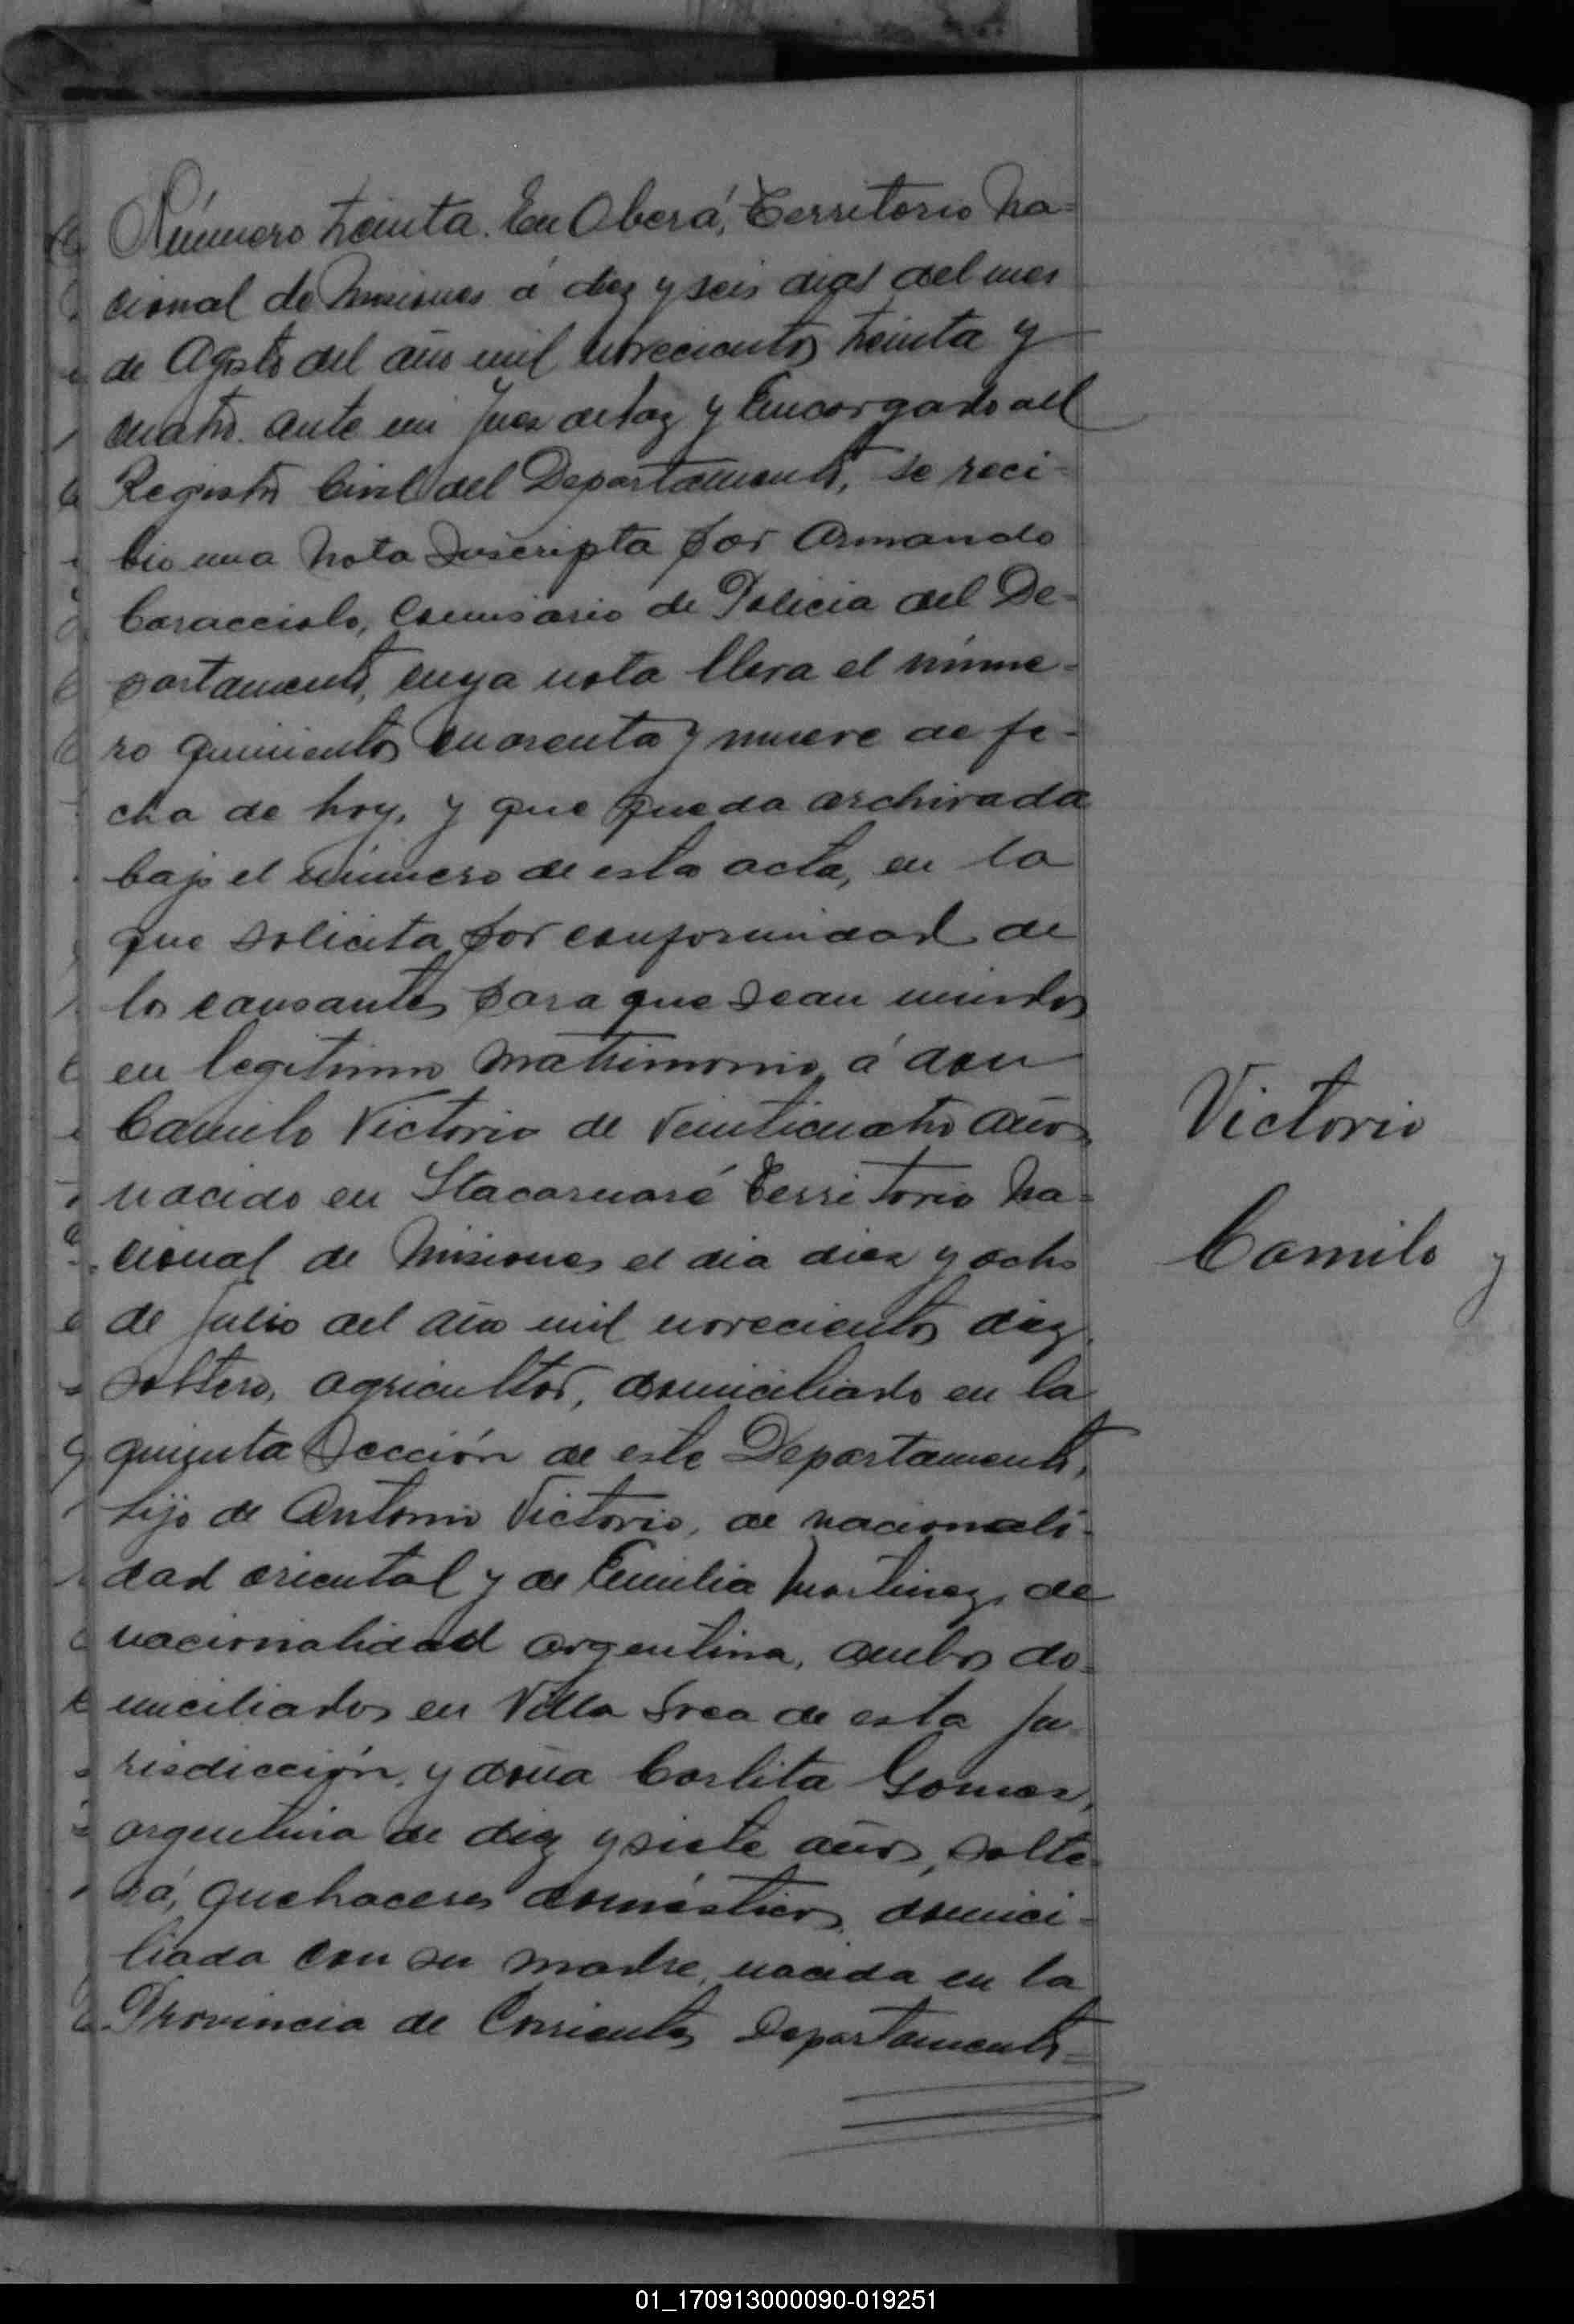 Número treinta. En Oberá, Territorio Na=
cional de Misiones á diez y seis dias del mes
de Agosto del año mil novecientos treinta y
cuatro. ante mi Juez de Paz y Encargado del
Registro Civil del Departamento, se reci-
bio una nota suscripta por Armando
Caracciolo, Comisario de Policia del De-
partamento, cuya nota lleva el núme-
ro quinientos cuarenta y nueve de fe-
cha de hoy, y que queda archivada
bajo el número de esta acta, en la
que solicita por conformidad de
los causantes para que sean unidos
en legitimo matrimonio, á don
Camilo Victorio de veinticuatro años
nacido en Itacaruaré Territorio Na=
cional de Misiones el dia diez y ocho
de Julio del año mil novecientos diez,
soltero, agricultor, domiciliado en la
quinta Sección de este Departamento,
hijo de Antonio Victorio, de nacionali-
dad oriental y de Emilia Martinez, de
nacionalidad argentina, ambos do=
miciliados en Villa Svea de esta Ju-
risdicción, y doña Carlita Gomez,
argentina de diez y siete años, solte-
ra, quehaceres domésticos, domici-
liada con su madre, nacida en la
Provincia de Corrientes Departamento=
Victorio
Camilo y
01_170913000090-019251